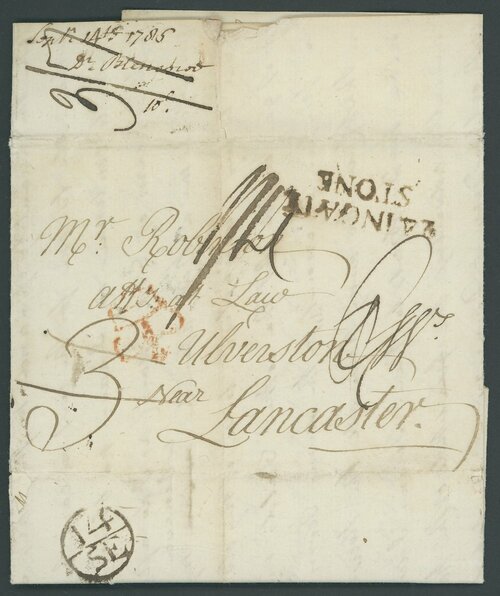 Sepr. 14th 1785
Dr.
at
10s.
INGATE
STONE
Mr. Robinson
atty. at Law
Ulverston
Near
Lancaster.
3
14
SE